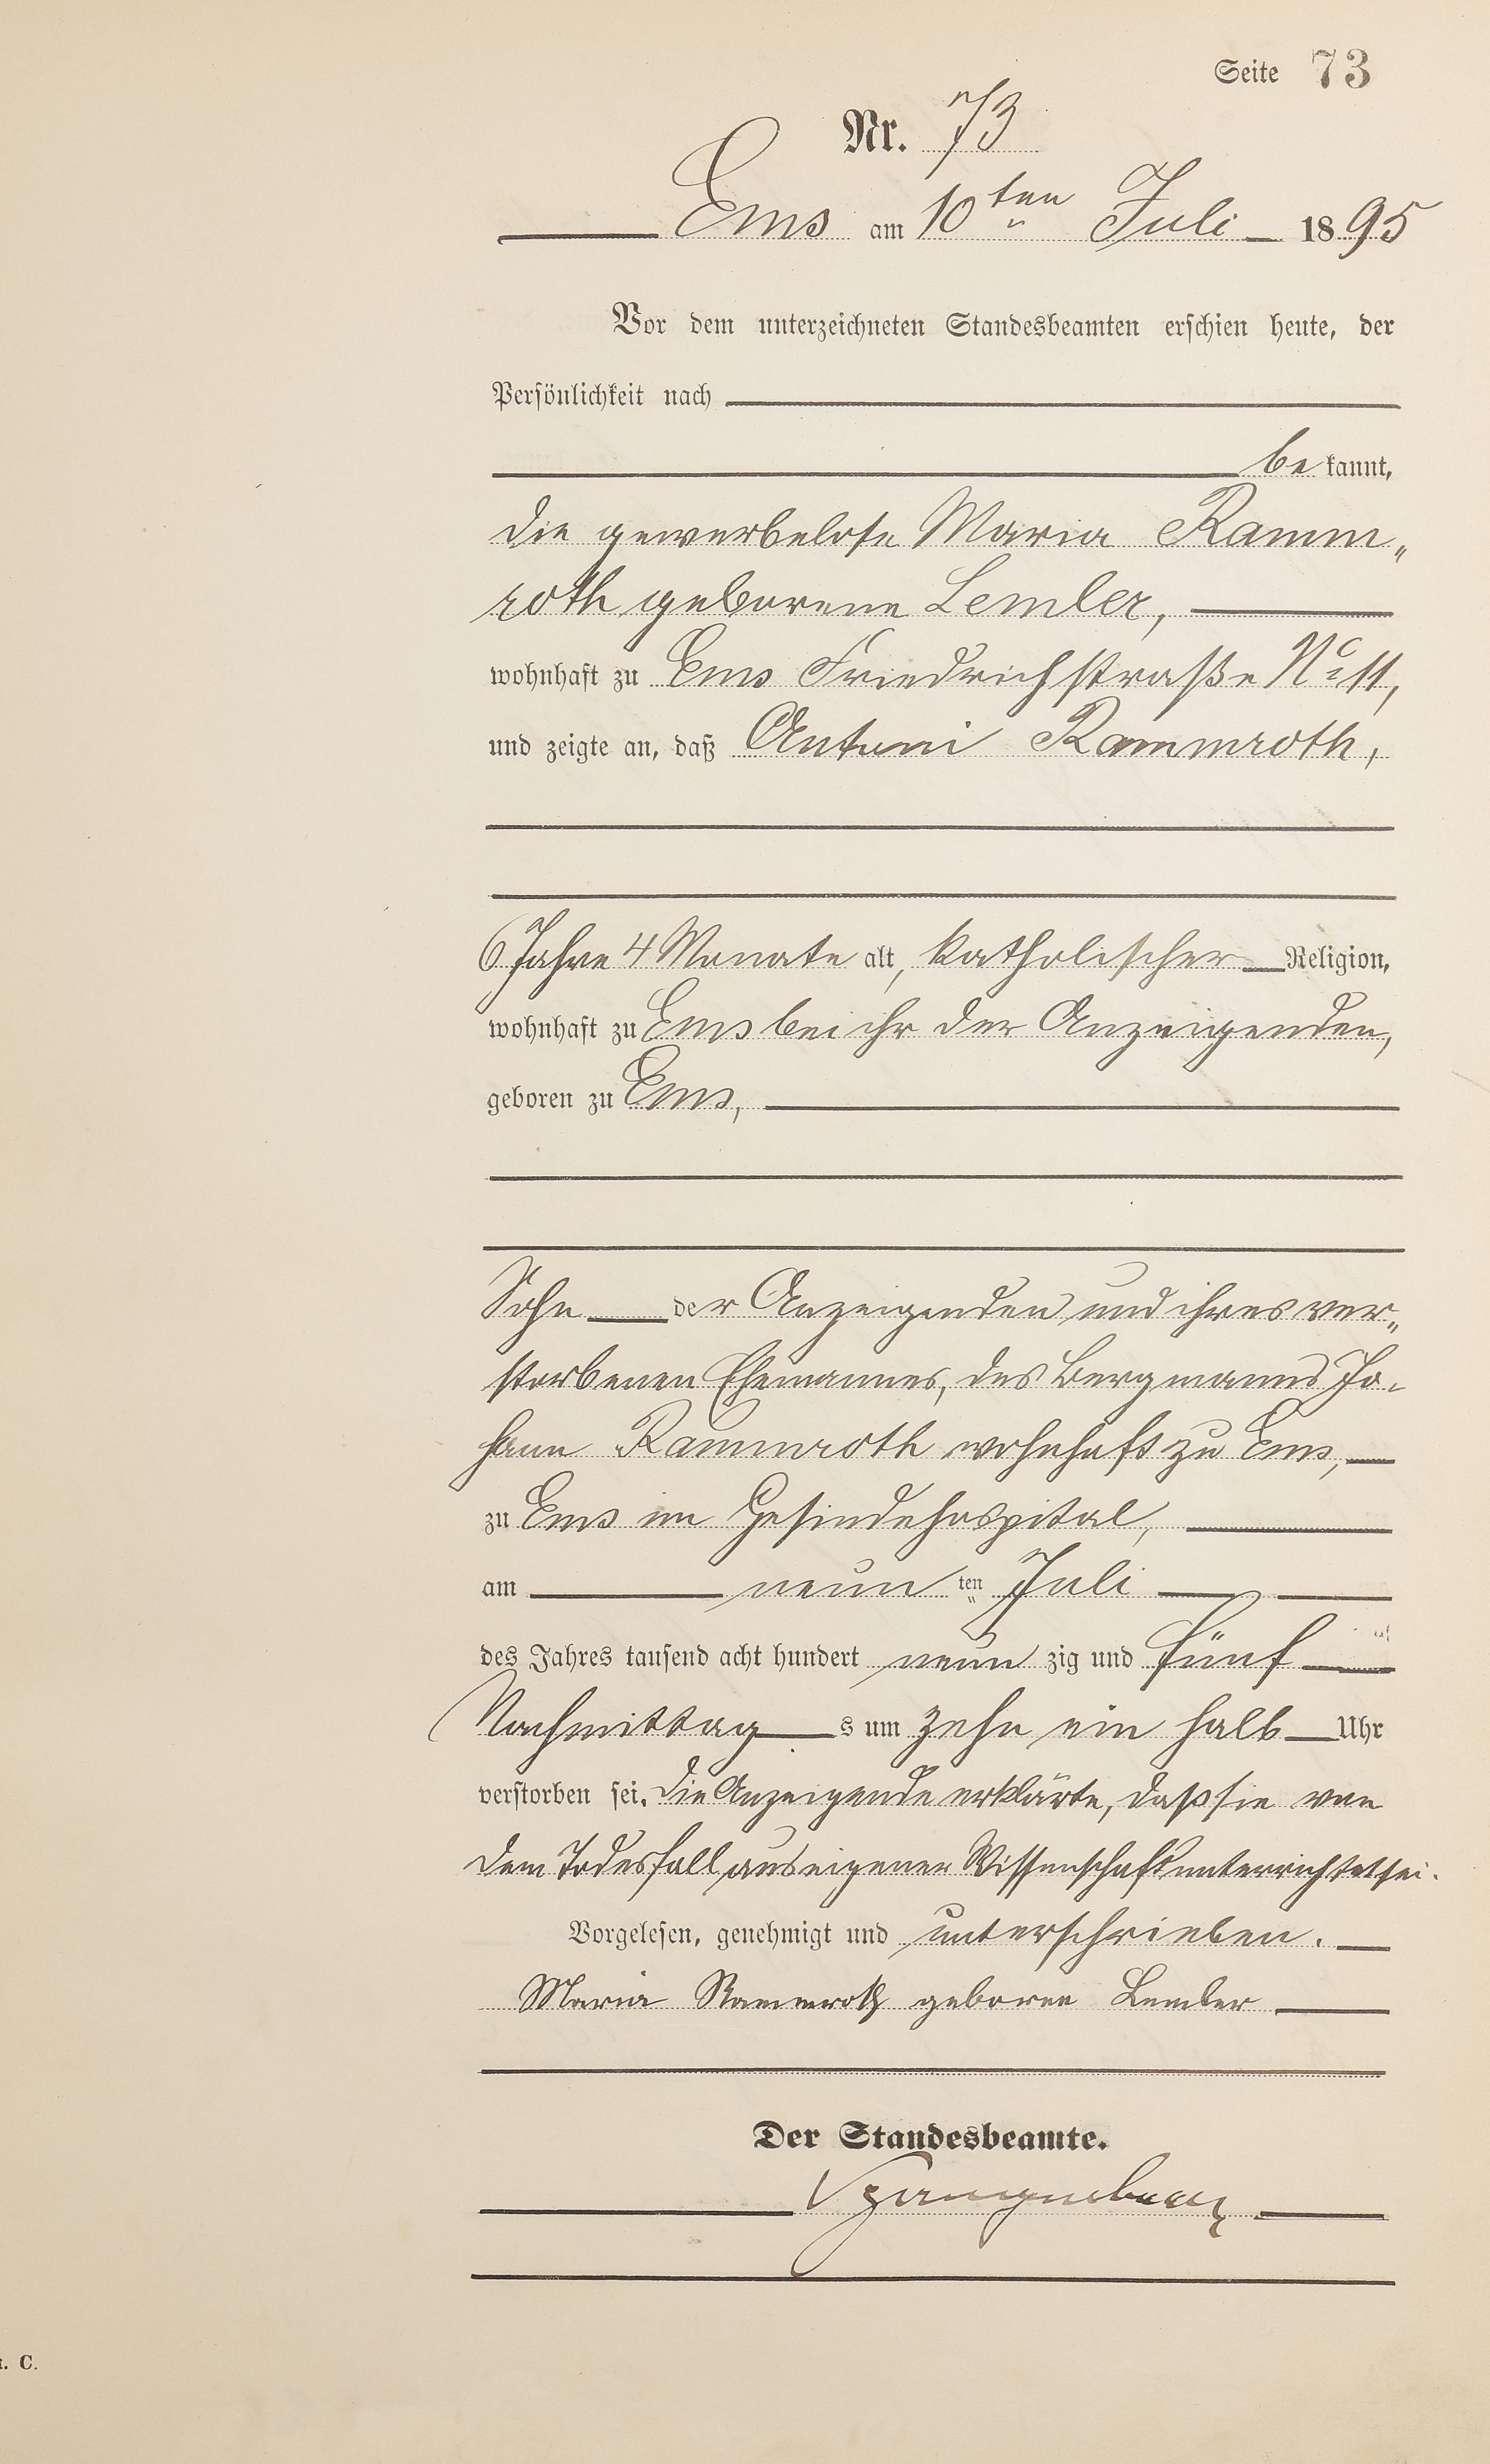 Seite 73
Nr. 73
Ems am 10ten Juli 1895
Vor dem unterzeichneten Standesbeamten erschien heute, der
Persönlichkeit nach
bekannt,
die gewerbelose Maria Ramm„
roth geborene Lemler,
wohnhaft zu Ems Friedrichstraße No 11,
und zeigte an, daß Antoni Rammroth,
6 Jahre 4 Monate alt, katholischer Religion,
wohnhaft zu Ems bei ihr der Anzeigenden,
geboren zu Ems,
Sohn der Anzeigenden und ihres ver„
storbenen Ehemannes, des Bergmanns Jo„
hann Rammroth wohnhaft zu Ems,
zu Ems im Gesindehospital,
am neunten Juli
des Jahres tausend acht hundert neunzig und fünf
Nachmittags um zehn ein halb Uhr
verstorben sei. Die Anzeigende erklärte, daß sie von
dem Todesfall aus eigener Wissenschaft unterrichtet sei.
Vorgelesen, genehmigt und unterschrieben.
Maria Rammroth geboren Lemler
Der Standesbeamte.
C.